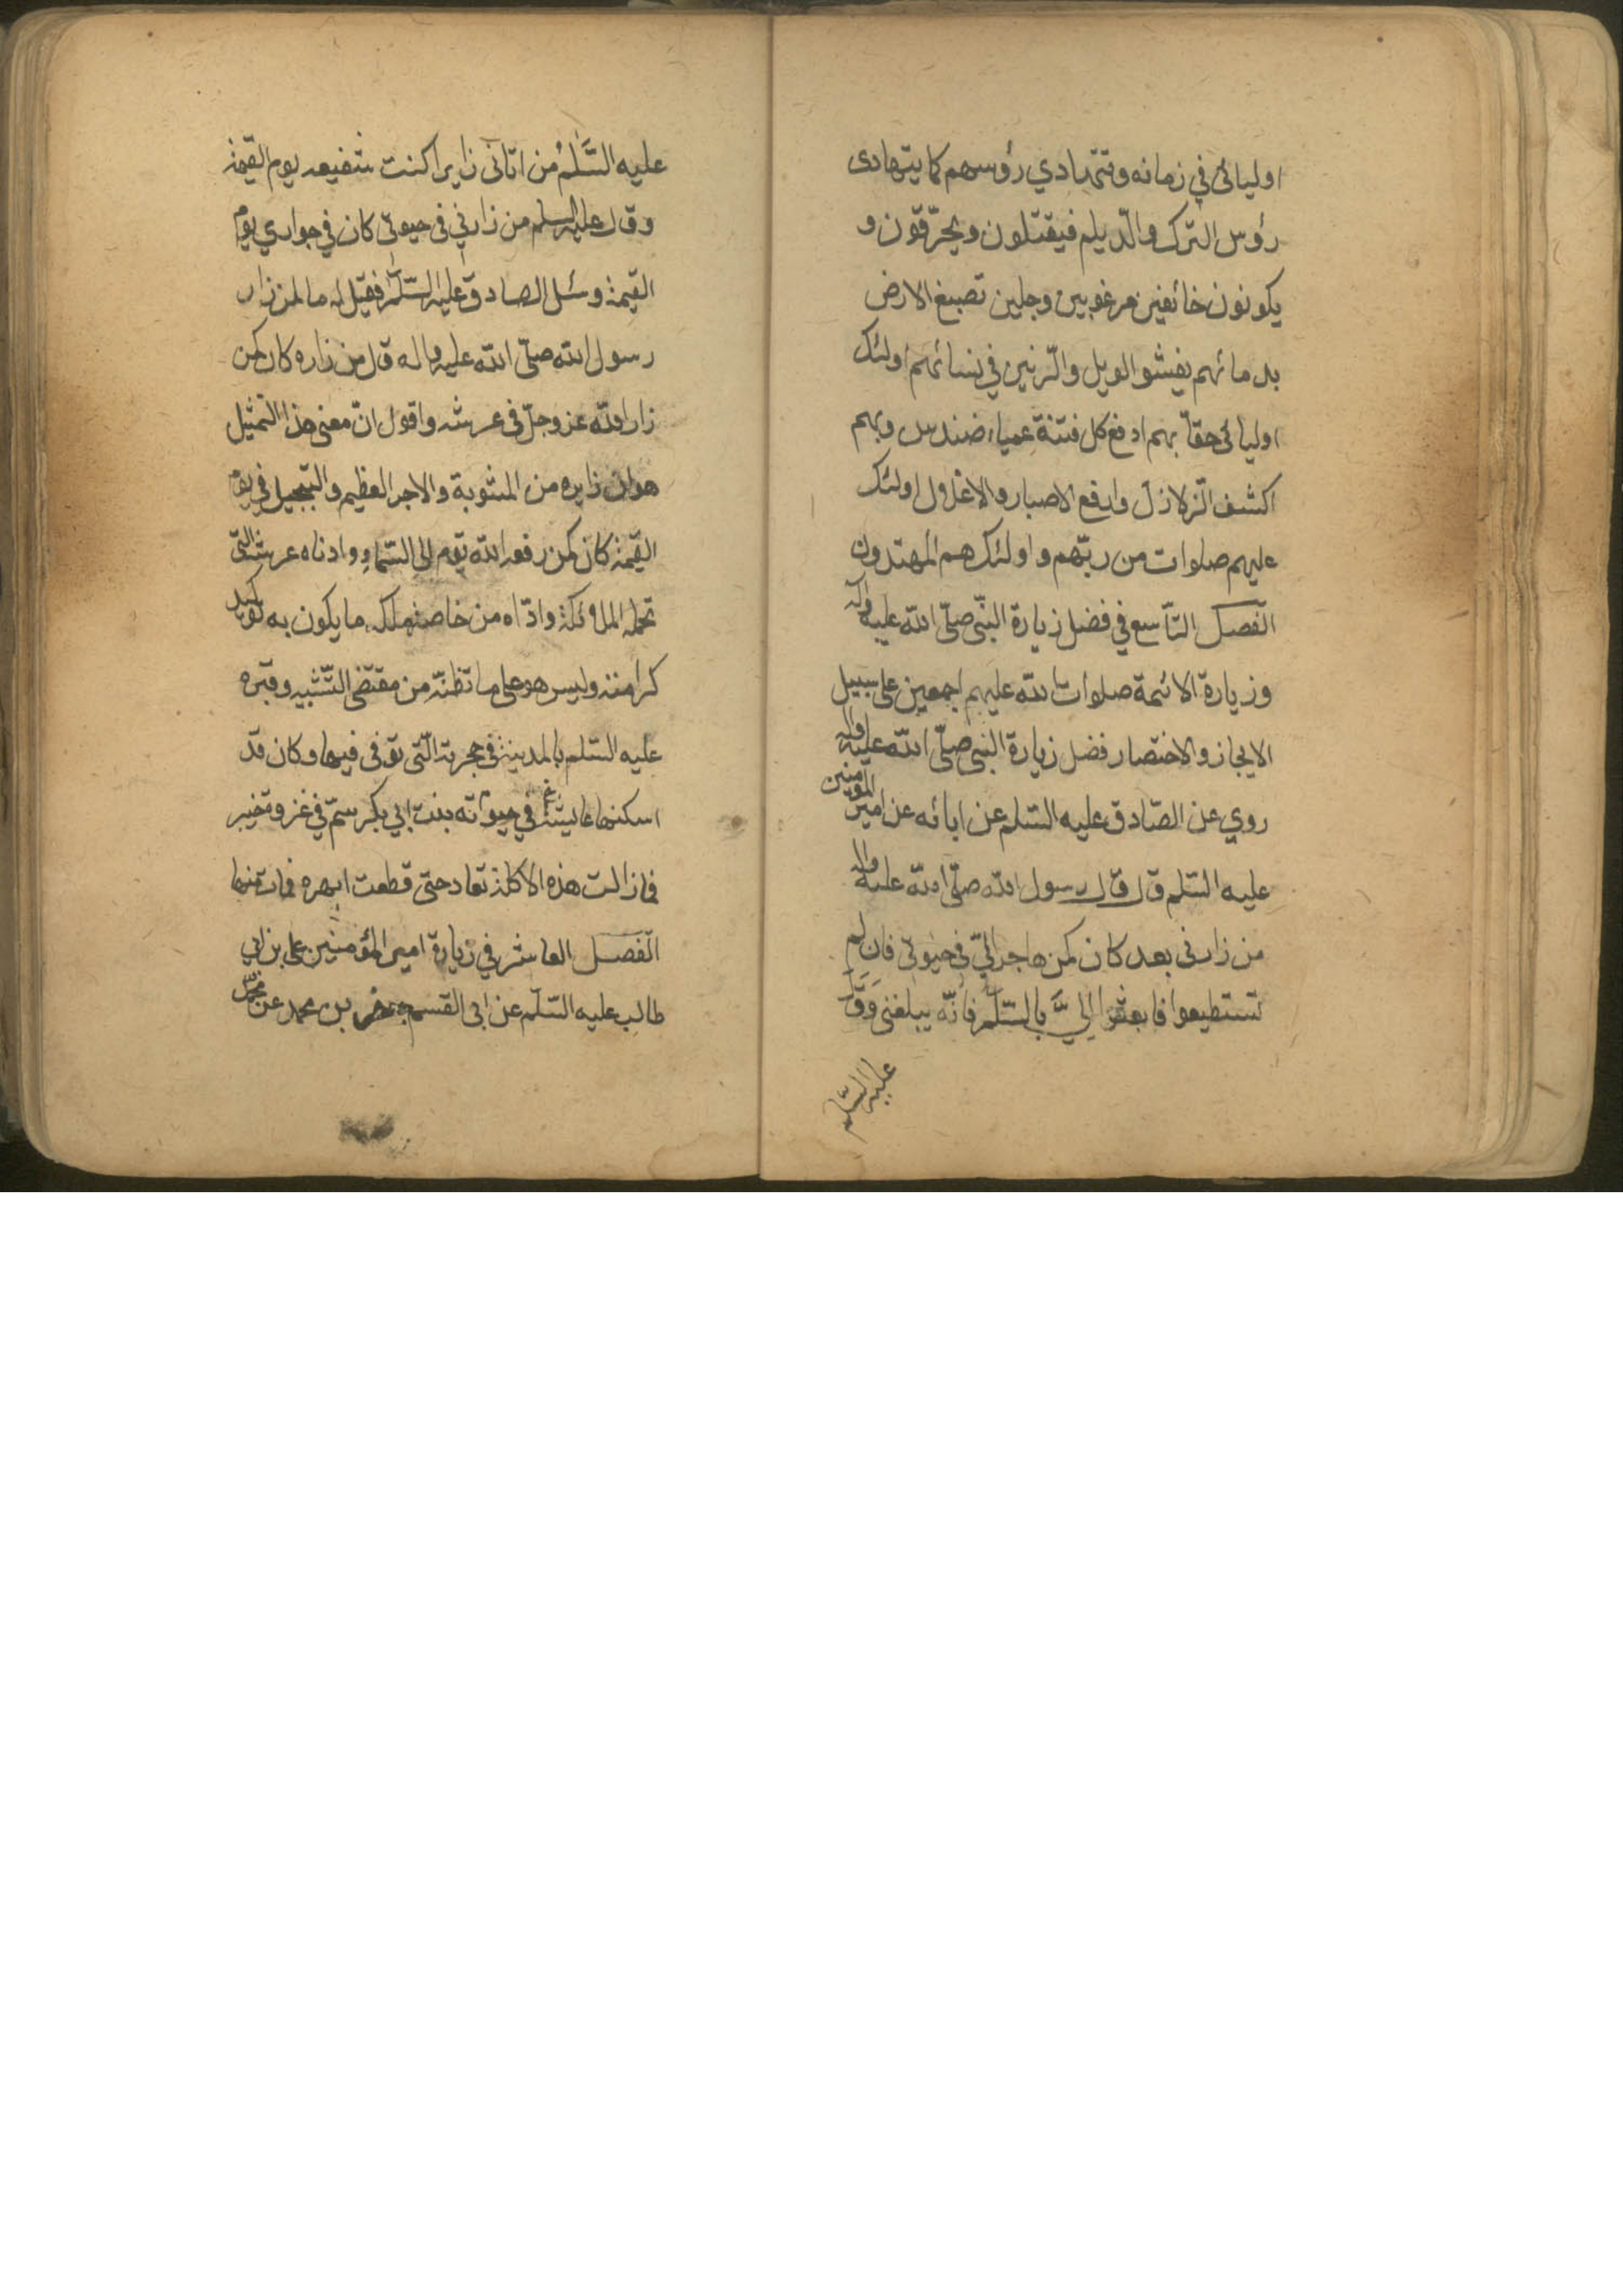 اوليائى في زمانه وتتهادي رؤسهم كما يتهادى
رؤس الترك والديلم فيقتلون ويحرّقون و
يكونون خائفين مرغوبين وجلين تصبغ الارض
بدمائهم يفشو الويل والرّنين في نسائهم اولئك
اوليائى حقّا بهم ادفع كل فتنة عمياء ضندس وبهم
اكشف الزلازل وادفع الاصبار والاغلال اولئك
عليهم صلوات من ربّهم واولئك هم المهتدون
الفصل التاسع في فضل زيارة النّبى صلّى الله عليه واله
وزيارة الائمة صلوات الله عليهم اجمعين على سبيل
الايجاز والاختصار فضل زيارة النبى صلّى الله عليه واله
روي عن الصّادق عليه السّلم عن ابائه عن امير المومنين
عليه السّلم قال قال رسول الله صلّى الله عليه واله
من زارنى بعد كان كمن هاجر الىّ فى حيوتى فان لم
تستطيعوا فابعثوا الىَّ بالسّلم فانّه يبلغنى وقال
عليه السّلم
عليه السَّلمُ من اتانى زايرا كنت شفيعه يوم القيمة
وقال عليه السلم من زارني فى حيوتى كان في جواري يوم
القيمة وسئل الصادق عليه السّلم فقيل له ما لمن زار
رسول الله صلّى الله عليه واله قال من زاره كان كمن
زار الله عز وجلّ فى عرشه واقول انّ معنى هذا التمثيل
هو ان زايره من المثوبة والاجر العظيم والتبجيل في يوم
القيمة كان كمن رفعه الله تعم الى السّماء وادناه عرشه الّتى
تحمله الملائكة واداه من خاصة ملكه ما يكون به توكيد
كرامته وليس هو على ما تظنّه من مقتضى التّشبيه وقبره
عليه السّلم بالمدينة فى حجرته الّتى توفى فيها وكان قد
اسكنها عايشة في حيوته بنت ابي بكر سمّ في غزوة خيبر
فما زالت هذه الاكلة تعاد حتى قطعت ابهره فمات منها
الفصل العاشر في زيارة امير المؤمنين على بن ابي
طالب عليه السّلم عن ابى القسم جعفر بن محمد عن محمّد